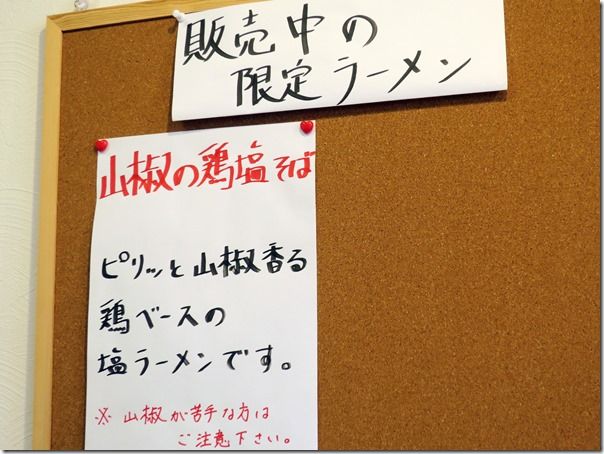 販売中の
限定ラーメン
山椒の鶏塩そば
ピリッと山椒香る
鶏ベースの
塩ラーメンです。
※山椒が苦手な方は
ご注意下さい。